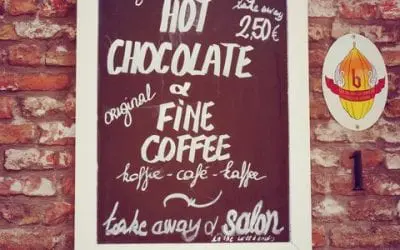 HOT
take away
2,50€
CHOCOLATE
&
original
FINE
COFFEE
koffie - café - kaffee
take away & salon
b
1